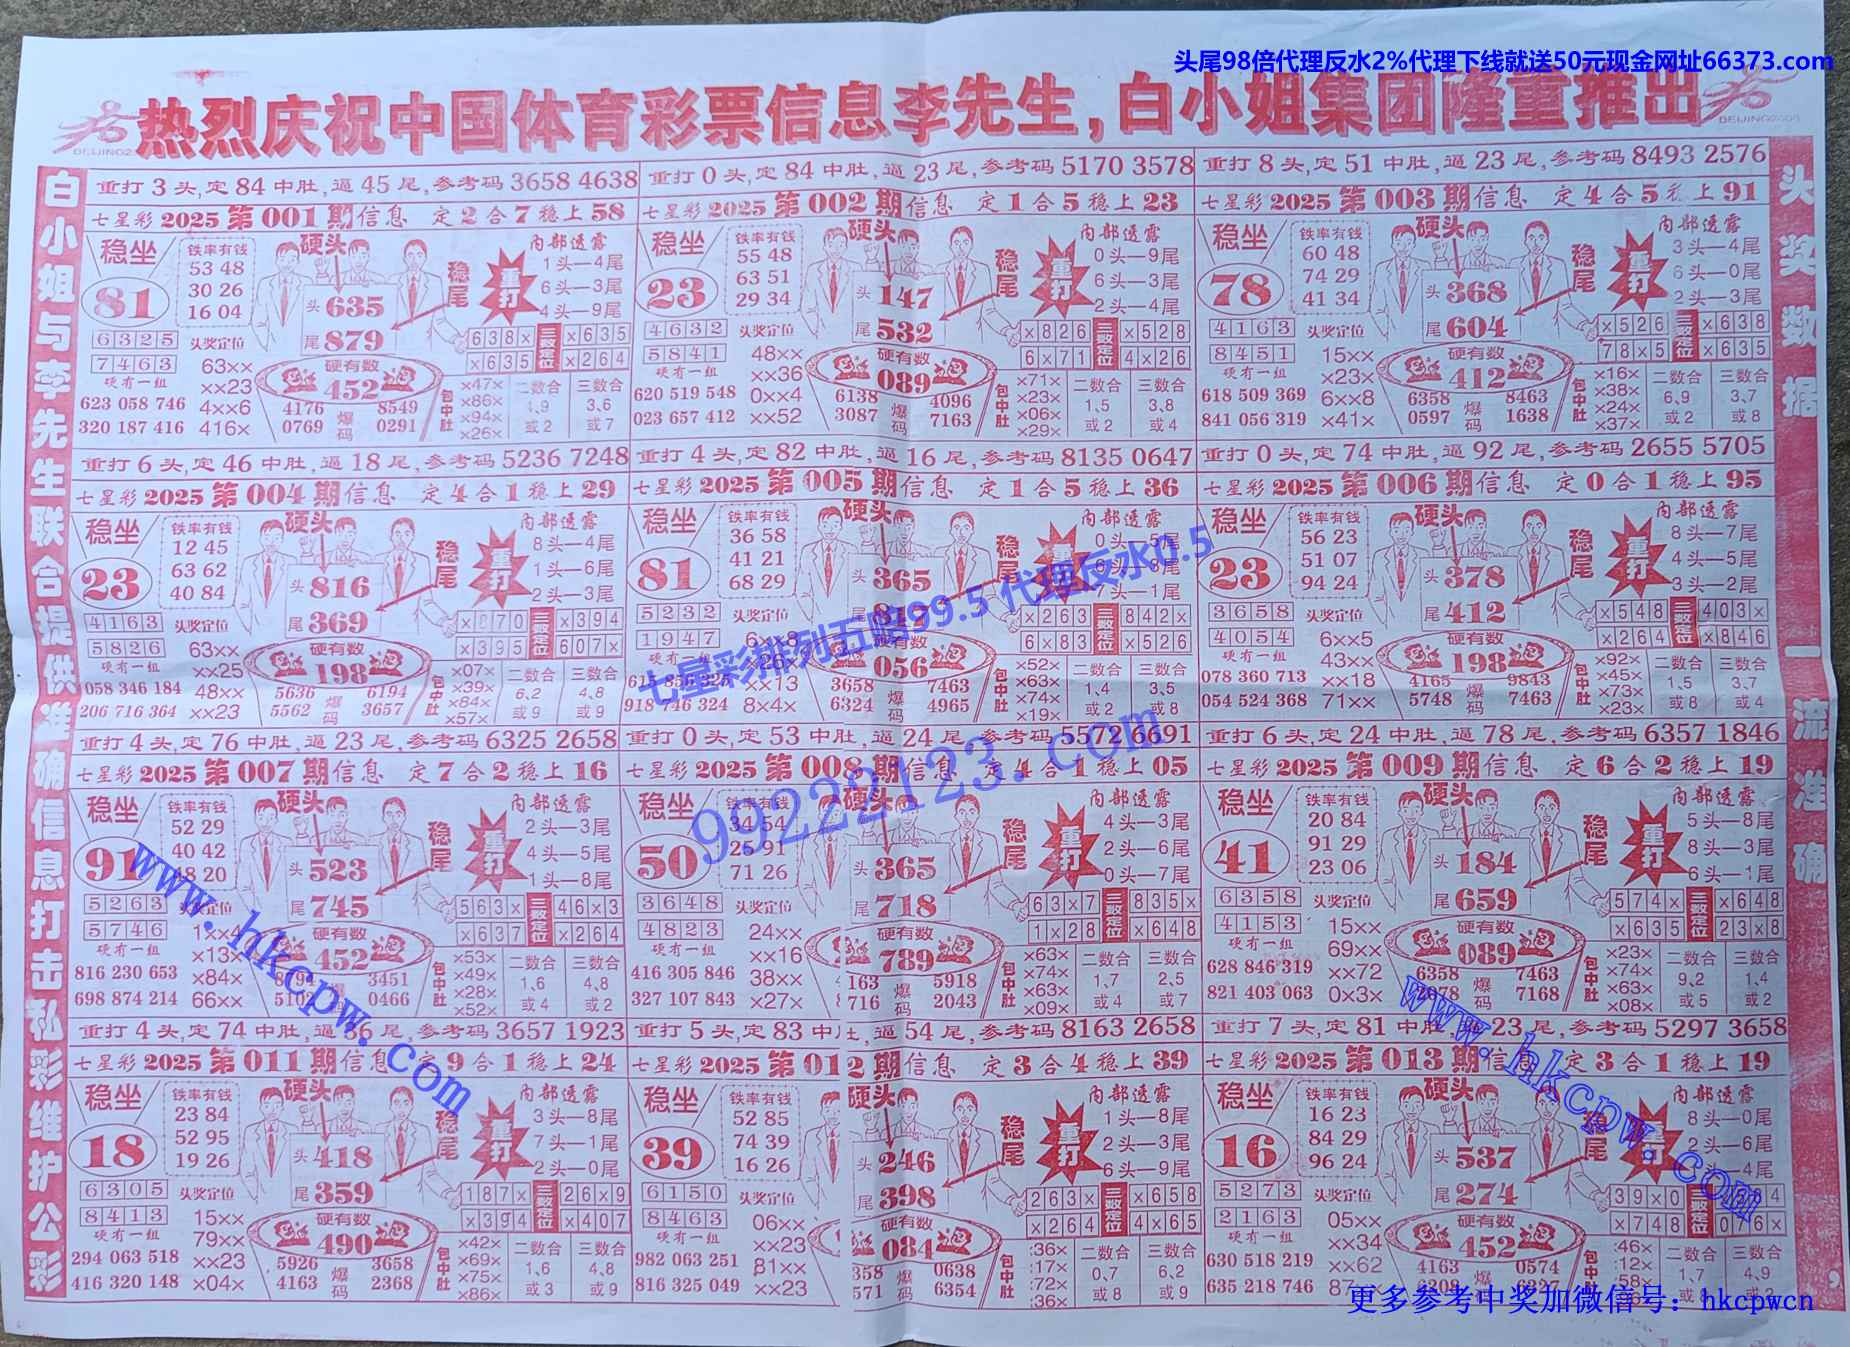 头尾98倍代理反水2%代理下线就送50元现金网址66373.com
热烈庆祝中国体育彩票信息李先生,白小姐集团隆重推出
白小姐与李先生联合提供准确信息打击私彩维护公彩
头奖数据一流准确
重打3头,定84中肚,逼45尾,参考码3658 4638
七星彩2025第001期信息 定2合7稳上58
稳坐
81
铁率有钱
53 48
30 26
16 04
硬头
头635
尾879
稳尾
重打
内部透露
1头—4尾
6头—3尾
4头—9尾
6325
7463
头奖定位
63××
××23
4××6
416×
硬有一组
623 058 746
320 187 416
硬有数
452
4176 8549
0769 爆码 0291
638× 三数定位 ×635
×635 ×264
包中肚
×47×
×86×
×94×
×26×
二数合
4,9
或7
三数合
3,6
或7
重打0头,定84中肚,逼23尾,参考码5170 3578
七星彩2025第002期信息 定1合5稳上23
稳坐
23
铁率有钱
55 48
63 51
29 34
硬头
头147
尾532
稳尾
重打
内部透露
0头—9尾
6头—3尾
2头—4尾
4632
5841
头奖定位
48××
××36
0××4
××52
硬有一组
620 519 548
023 657 412
硬有数
089
6138 4096
3087 爆码 7163
×826 三数定位 ×528
6×71 4×26
包中肚
×71×
×23×
×06×
×29×
二数合
1,5
或2
三数合
3,8
或4
重打8头,定51中肚,逼23尾,参考码8493 2576
七星彩2025第003期信息 定4合5稳上91
稳坐
78
铁率有钱
60 48
74 29
41 34
硬头
头368
尾604
稳尾
重打
内部透露
3头—4尾
6头—0尾
2头—3尾
4163
8451
头奖定位
15××
×23×
6××8
×41×
硬有一组
618 509 369
841 056 319
硬有数
412
6358 8463
0597 爆码 1638
×526 三数定位 ×638
78×5 ×635
包中肚
×16×
×38×
×24×
×37×
二数合
6,9
或2
三数合
3,7
或8
重打6头,定46中肚,逼18尾,参考码5236 7248
七星彩2025第004期信息 定4合1稳上29
稳坐
23
铁率有钱
12 45
63 62
40 84
硬头
头816
尾369
稳尾
重打
内部透露
8头—4尾
1头—6尾
2头—3尾
4163
5826
头奖定位
63××
××25
48××
××23
硬有一组
058 346 184
206 716 364
硬有数
198
5636 6194
5562 爆码 3657
×070 三数定位 ×394
×395 607×
包中肚
×07×
×39×
×64×
×57×
二数合
6,2
或9
三数合
4,8
或9
重打4头,定82中肚,逼16尾,参考码8135 0647
七星彩2025第005期信息 定1合5稳上36
稳坐
81
铁率有钱
36 58
41 21
68 29
硬头
头365
稳尾
内部透露
0头—5尾
7头—1尾
5232
1947
头奖定位
××13
8×4×
硬有一组
918 746 324
硬有数
056
3658 7463
6324 爆码 4965
×263 三数定位 842×
6×83 ×526
包中肚
×52×
×63×
×74×
×19×
二数合
1,4
或2
三数合
3,5
或8
重打0头,定74中肚,逼92尾,参考码2655 5705
七星彩2025第006期信息 定0合1稳上95
稳坐
23
铁率有钱
56 23
51 07
94 24
硬头
头378
尾412
稳尾
重打
内部透露
8头—7尾
4头—5尾
3头—2尾
3658
4054
头奖定位
6××5
43××
××18
71××
硬有一组
078 360 713
054 524 368
硬有数
198
4165 9843
5748 爆码 7463
×548 三数定位 403×
×264 ×846
包中肚
×92×
×45×
×73×
×23×
二数合
1,5
或8
三数合
3,7
或4
七星彩排列五赔99.5 代理反水0.5
99222123.com
重打4头,定76中肚,逼23尾,参考码6325 2658
七星彩2025第007期信息 定7合2稳上16
稳坐
91
铁率有钱
52 29
40 42
48 20
硬头
头523
尾745
稳尾
重打
内部透露
2头—3尾
4头—5尾
1头—8尾
5263
5746
头奖定位
1××4
×13×
×84×
66××
硬有一组
816 230 653
698 874 214
硬有数
452
3451
爆码 0466
563× 三数定位 46×3
×637 ×264
包中肚
×53×
×49×
×28×
×52×
二数合
1,6
或4
三数合
4,8
或2
重打0头,定53中肚,逼24尾,参考码5572 6691
七星彩2025第008期信息 定4合1稳上05
稳坐
50
铁率有钱
34 54
25 91
71 26
硬头
头365
尾718
稳尾
重打
内部透露
4头—3尾
2头—6尾
0头—7尾
3648
4823
头奖定位
24××
××16
38××
×27×
硬有一组
416 305 846
327 107 843
硬有数
789
163 5918
716 爆码 2043
63×7 三数定位 835×
1×28 ×648
包中肚
×63×
×74×
×63×
×09×
二数合
1,7
或4
三数合
2,5
或7
重打6头,定24中肚,逼78尾,参考码6357 1846
七星彩2025第009期信息 定6合2稳上19
稳坐
41
铁率有钱
20 84
91 29
23 06
硬头
头184
尾659
稳尾
重打
内部透露
5头—8尾
8头—3尾
6头—1尾
6358
4153
头奖定位
15××
69××
××72
0×3×
硬有一组
628 846 319
821 403 063
硬有数
089
6358 7463
2078 爆码 7168
574× 三数定位 ×648
×635 23×8
包中肚
×23×
×74×
×63×
×08×
二数合
9,2
或5
三数合
1,4
或2
www.hkcpw.com
www.hkcpw.com
重打4头,定74中肚,逼86尾,参考码3657 1923
七星彩2025第011期信息 定9合1稳上24
稳坐
18
铁率有钱
23 84
52 95
19 26
硬头
头418
尾359
稳尾
重打
内部透露
3头—8尾
7头—1尾
2头—0尾
6305
8413
头奖定位
15××
79××
××23
×04×
硬有一组
294 063 518
416 320 148
硬有数
490
5926 3658
4163 爆码 2368
187× 三数定位 26×9
×394 ×407
包中肚
×42×
×69×
×75×
×86×
二数合
1,6
或3
三数合
4,8
或9
重打5头,定83中肚,逼54尾,参考码8163 2658
七星彩2025第012期信息 定3合4稳上39
稳坐
39
铁率有钱
52 85
74 39
16 26
硬头
头246
尾398
稳尾
重打
内部透露
1头—8尾
2头—3尾
6头—9尾
6150
8463
头奖定位
06××
××23
81××
××23
硬有一组
982 063 251
816 325 049
硬有数
084
358 0638
571 爆码 6354
263× 三数定位 ×658
×264 4×65
包中肚
36×
17×
72×
36×
二数合
0,7
或8
三数合
6,2
或9
重打7头,定81中肚,逼23尾,参考码5297 3658
七星彩2025第013期信息 定3合1稳上19
稳坐
16
铁率有钱
16 23
84 29
96 24
硬头
头537
尾274
稳尾
重打
内部透露
8头—0尾
2头—6尾
4尾
5273
2163
头奖定位
05××
××34
××62
硬有一组
630 518 219
635 218 746
硬有数
452
4163 0574
爆码
39×0 三数定位
×748 076×
包中肚
46×
12×
58×
二数合
1,7
三数合
4,9
更多参考中奖加微信号：hkcpwcn